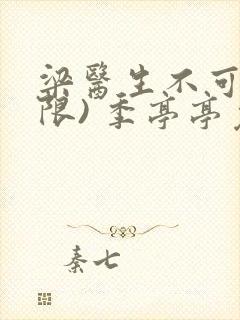 梁醫生不可
限) 季亭亭
秦七